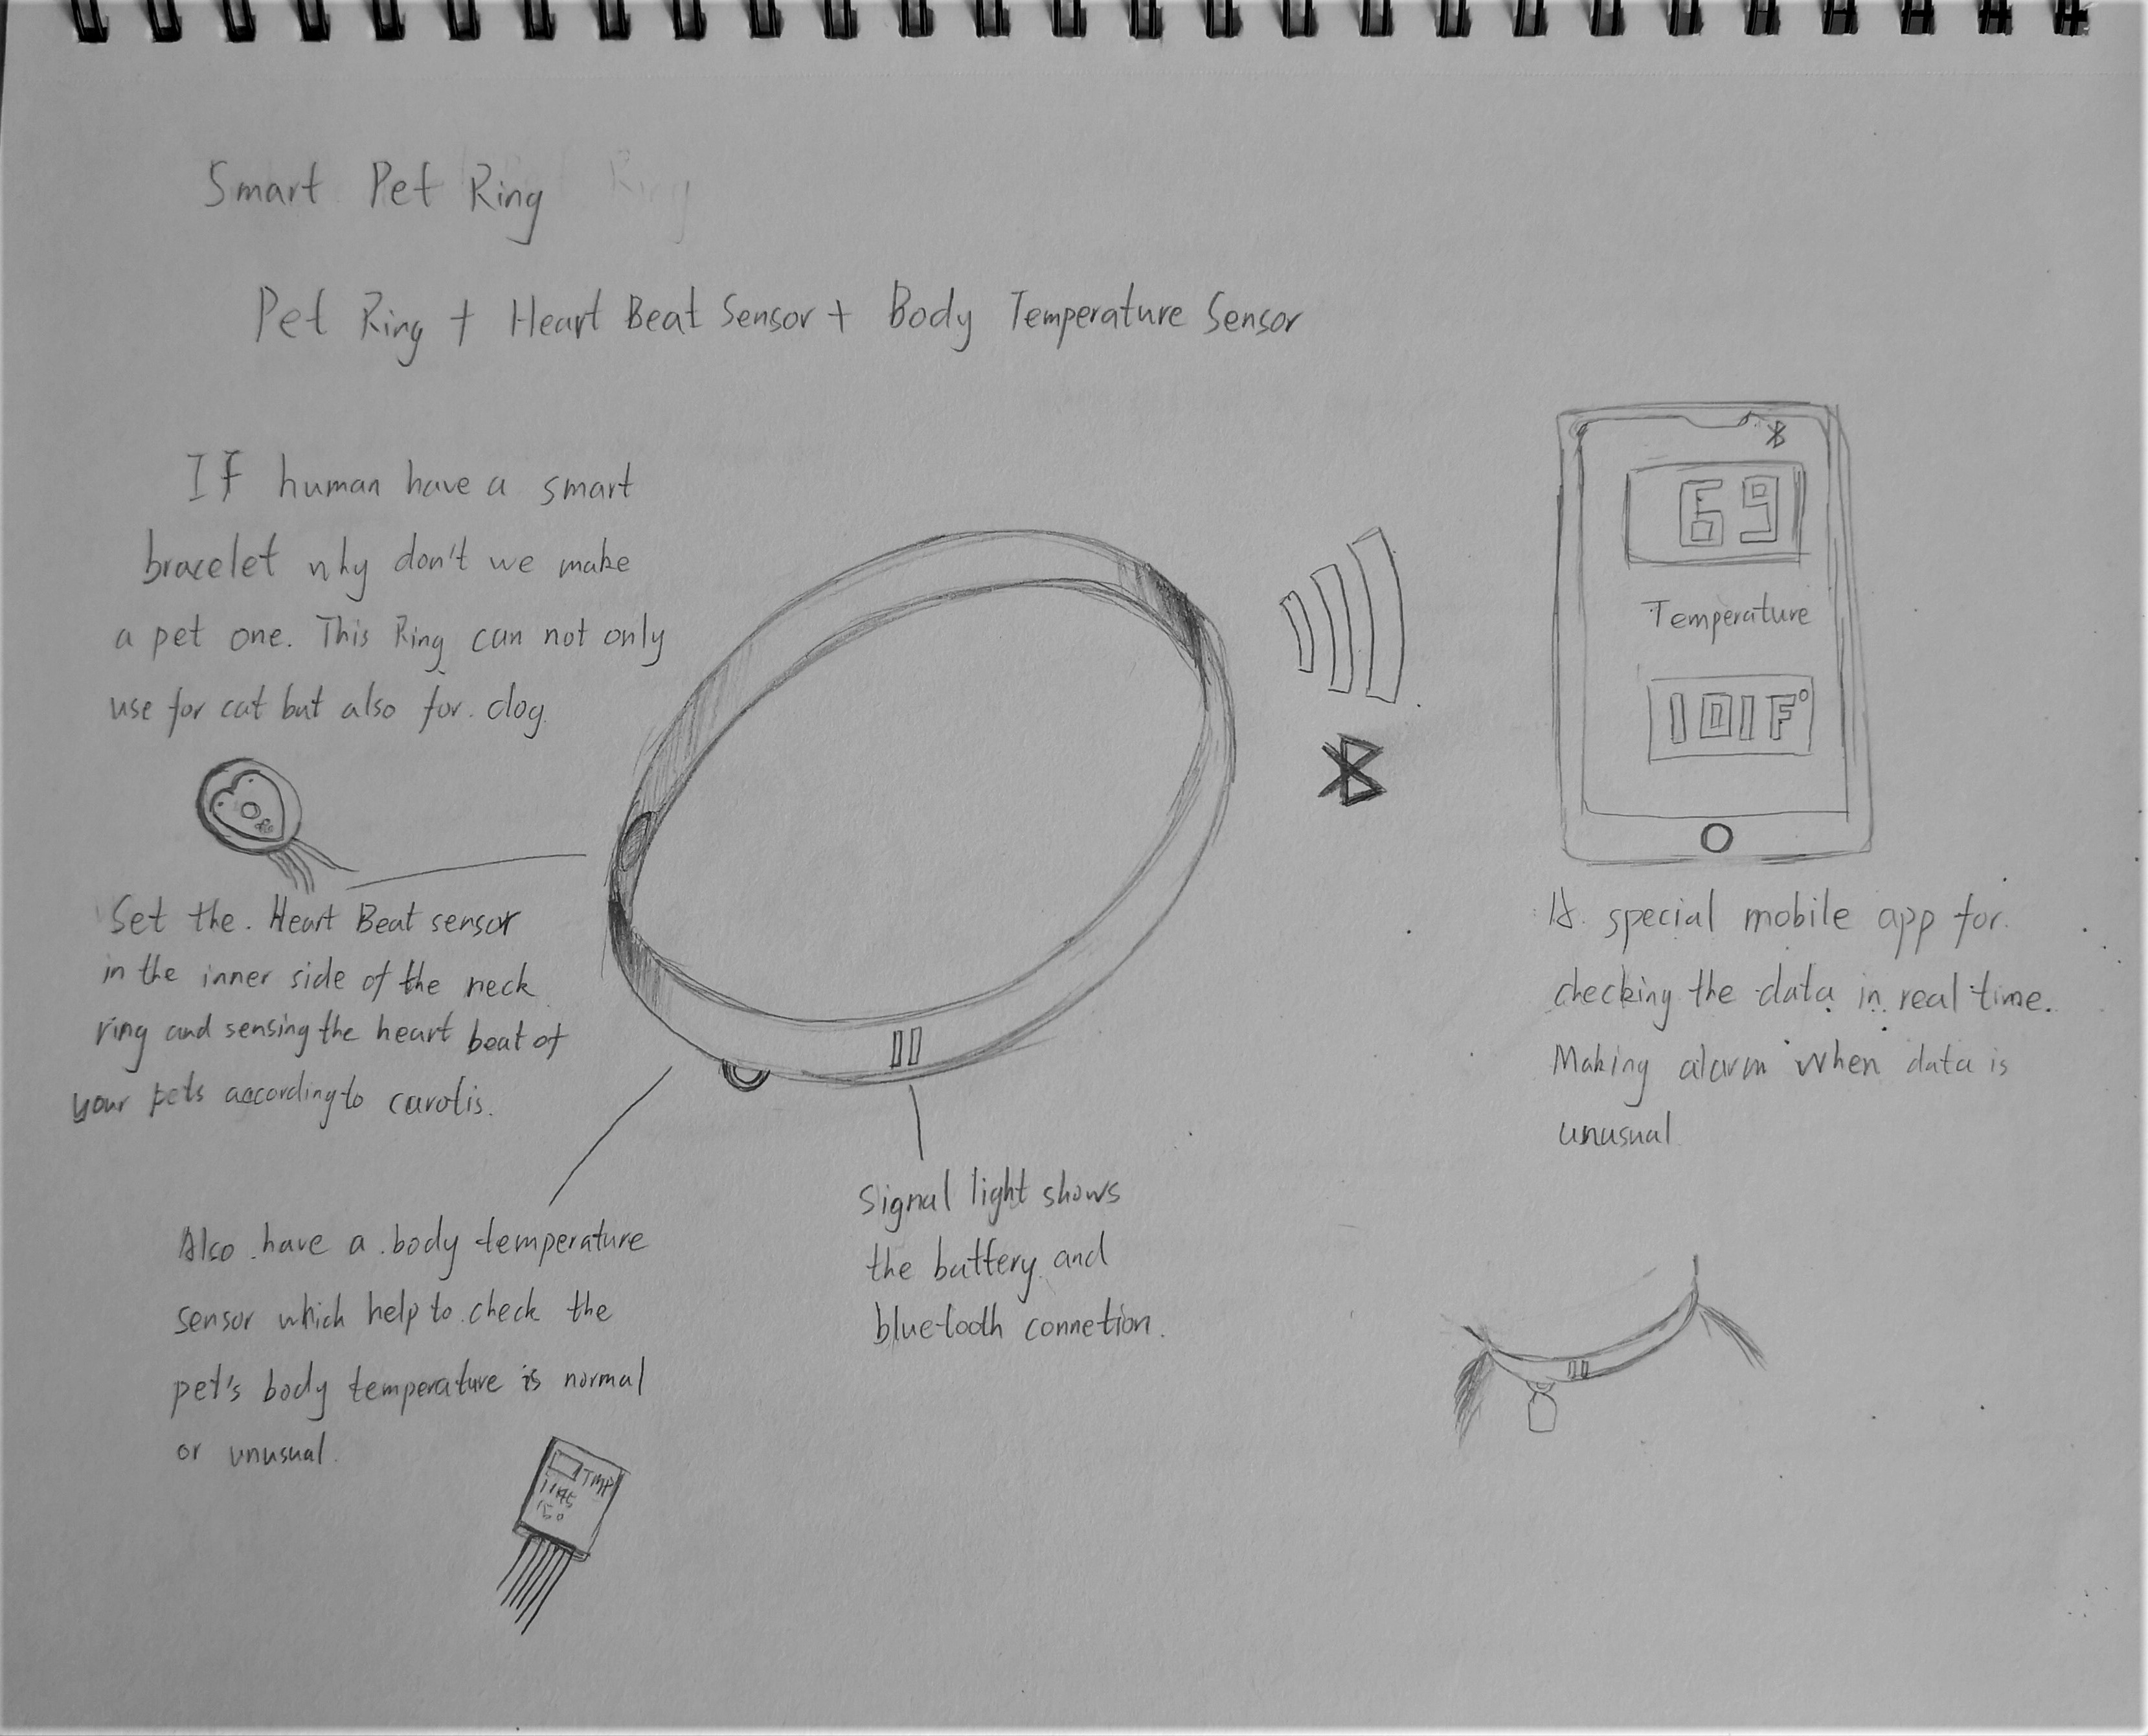 Smart Pet Ring
Pet Ring + Heart Beat Sensor + Body Temperature Sensor
If human have a smart
bracelet why don't we make
a pet one. This Ring can not only
use for cat but also for dog.
Set the Heart Beat sensor
in the inner side of the neck
ring and sensing the heart beat of
your pets according to carotis.
Also have a body temperature
sensor which help to check the
pet's body temperature is normal
or unusual.
TMP
Signal light shows
the battery and
bluetooth connetion.
69
Temperature
101F°
A special mobile app for
checking the data in real time.
Making alarm when data is
unusual